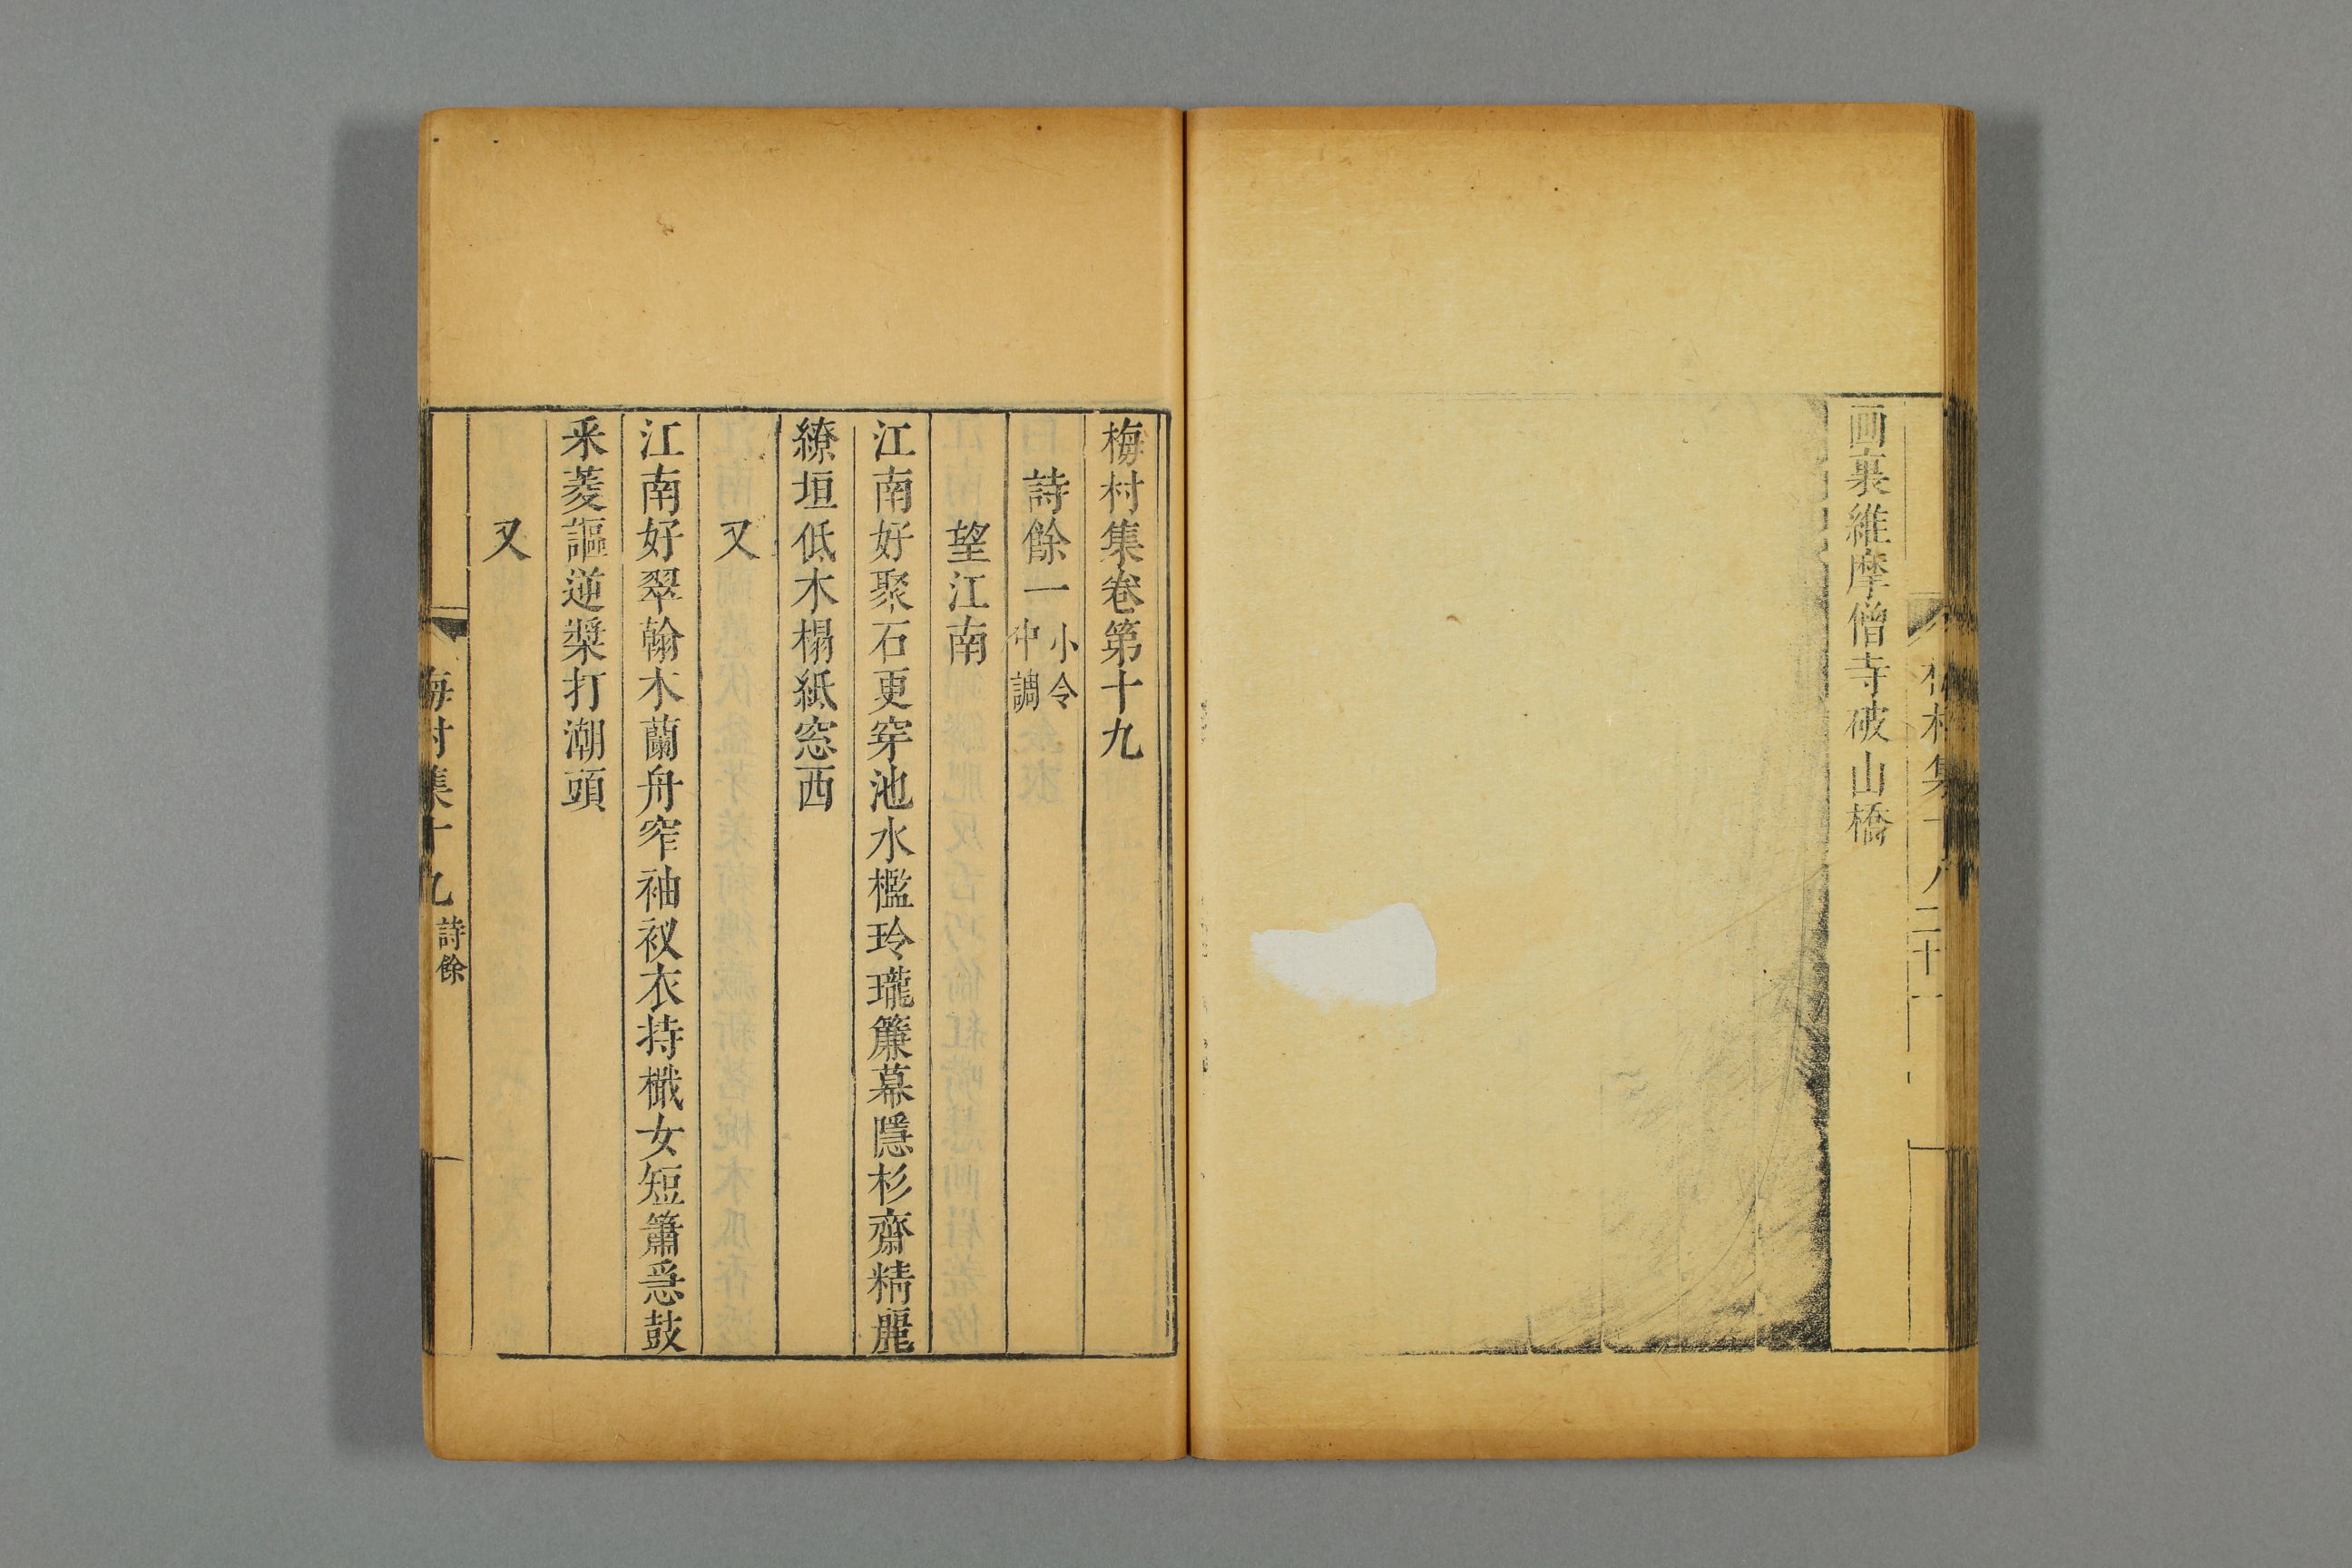 画裏維摩僧寺破山橋
梅村集卷第十九
詩餘一 小令 中調
望江南
江南好聚石更穿池水檻玲瓏簾幕隱杉齋精麗
繚垣低木榻紙窓西
又
江南好翠翰木蘭舟窄袖衩衣持檝女短簫急鼓
釆菱謳逆槳打潮頭
又
梅村集十九 詩餘